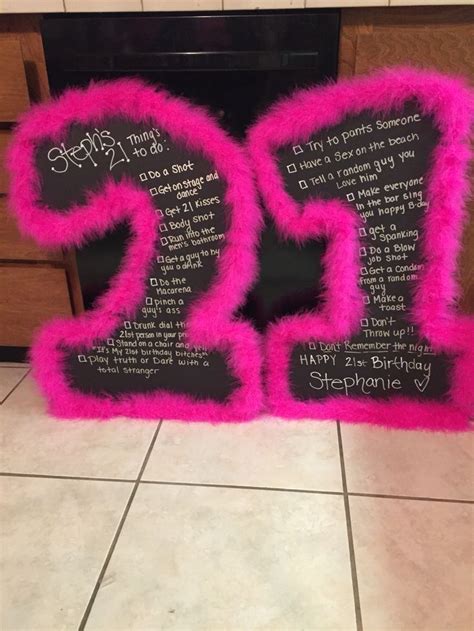 Steph's
21 Thing's
to do:
Do a Shot
Get on Stage and
dance
Get 21 Kisses
Body Shot
Run into the
men's bathroom
Get a guy to by
you a drink
Do the
Macarena
pinch a
guy's ass
Drunk dial the
21st person in your
Stand on a chair and
"It's My 21st birthday bitches"
Play truth or Dare with a
total stranger
Try to pants Someone
Have a Sex on the beach
Tell a random guy you
love him
Make everyone
in the bar sing
you happy B-day
get a
Spanking
Do a Blow
job Shot
Get a Condom
from a random
guy
Make a
toast
Don't
Throw up!!
Don't Remember the night
HAPPY 21st Birthday
Stephanie